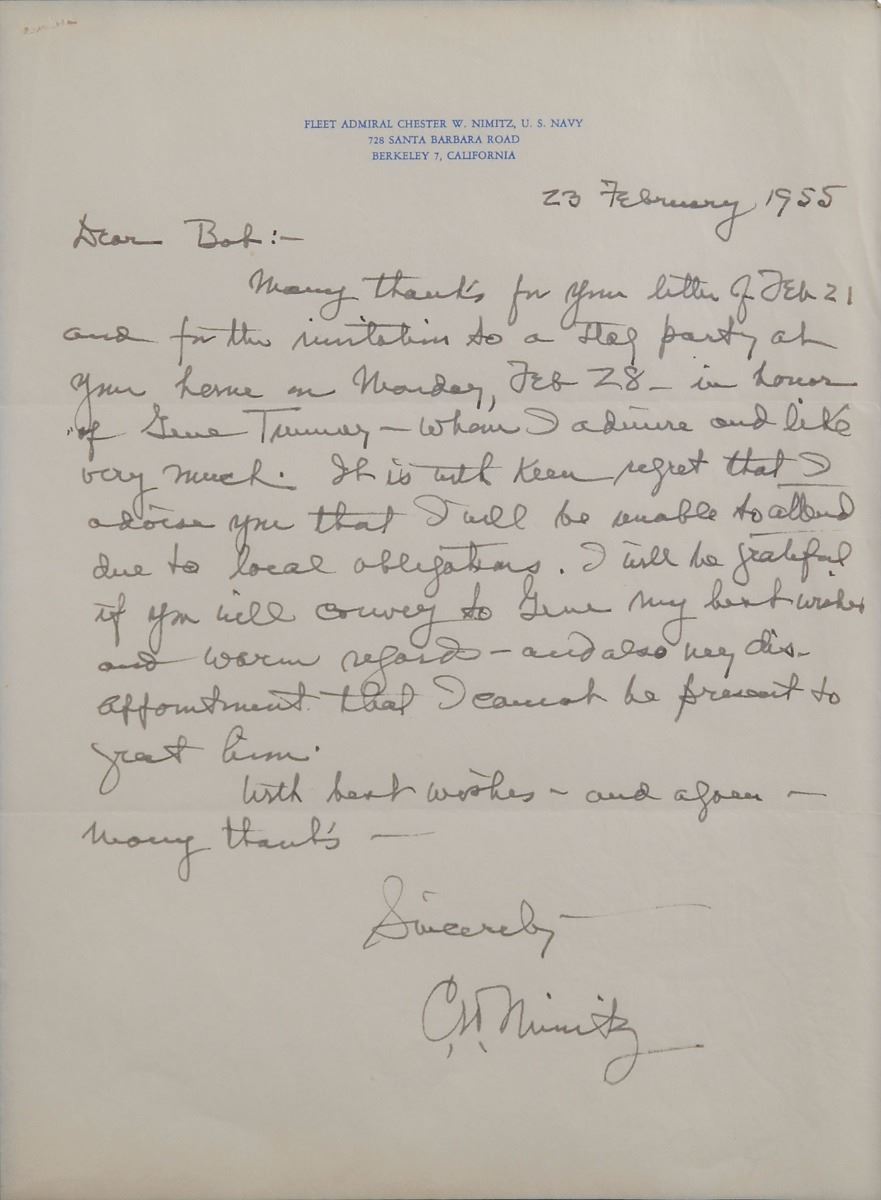 FLEET ADMIRAL CHESTER W. NIMITZ, U. S. NAVY
728 SANTA BARBARA ROAD
BERKELEY 7, CALIFORNIA
23 February 1955
Dear Bob:-
Many thanks for your letter of Feb 21
and for the invitation to a stag party at
your home on Monday, Feb 28 - in honor
of Gene Tunney - whom I admire and like
very much. It is with keen regret that I
advise you that I will be unable to attend
due to local obligations. I will be grateful
if you will convey to Gene my best wishes
and warm regards - and also my dis-
appointment that I cannot be present to
greet him.
With best wishes - and again -
many thanks -
Sincerely
C.W. Nimitz